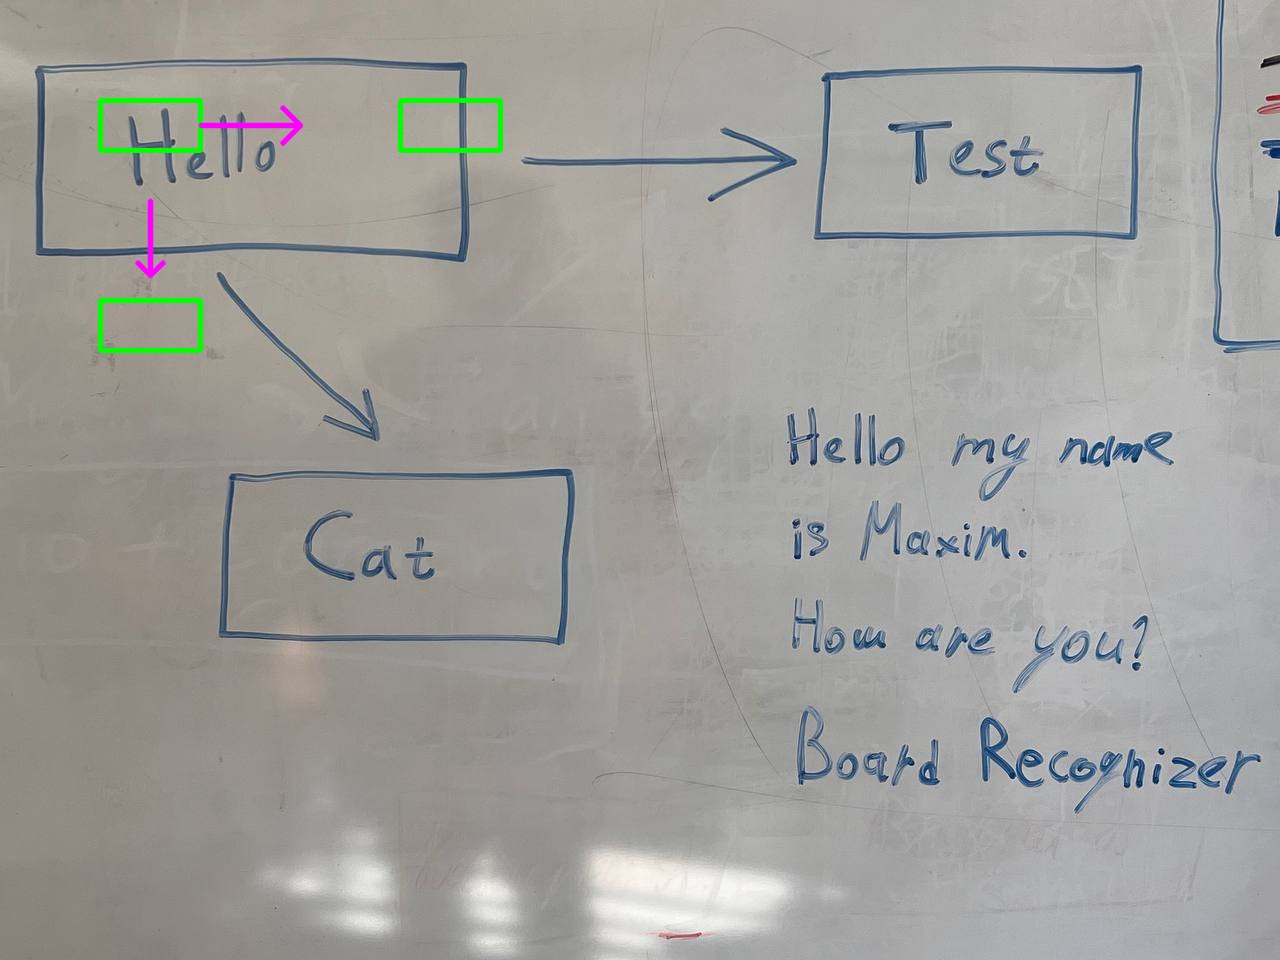 Hello
Test
Cat
Hello my name
is Maxim.
How are you?
Board Recognizer